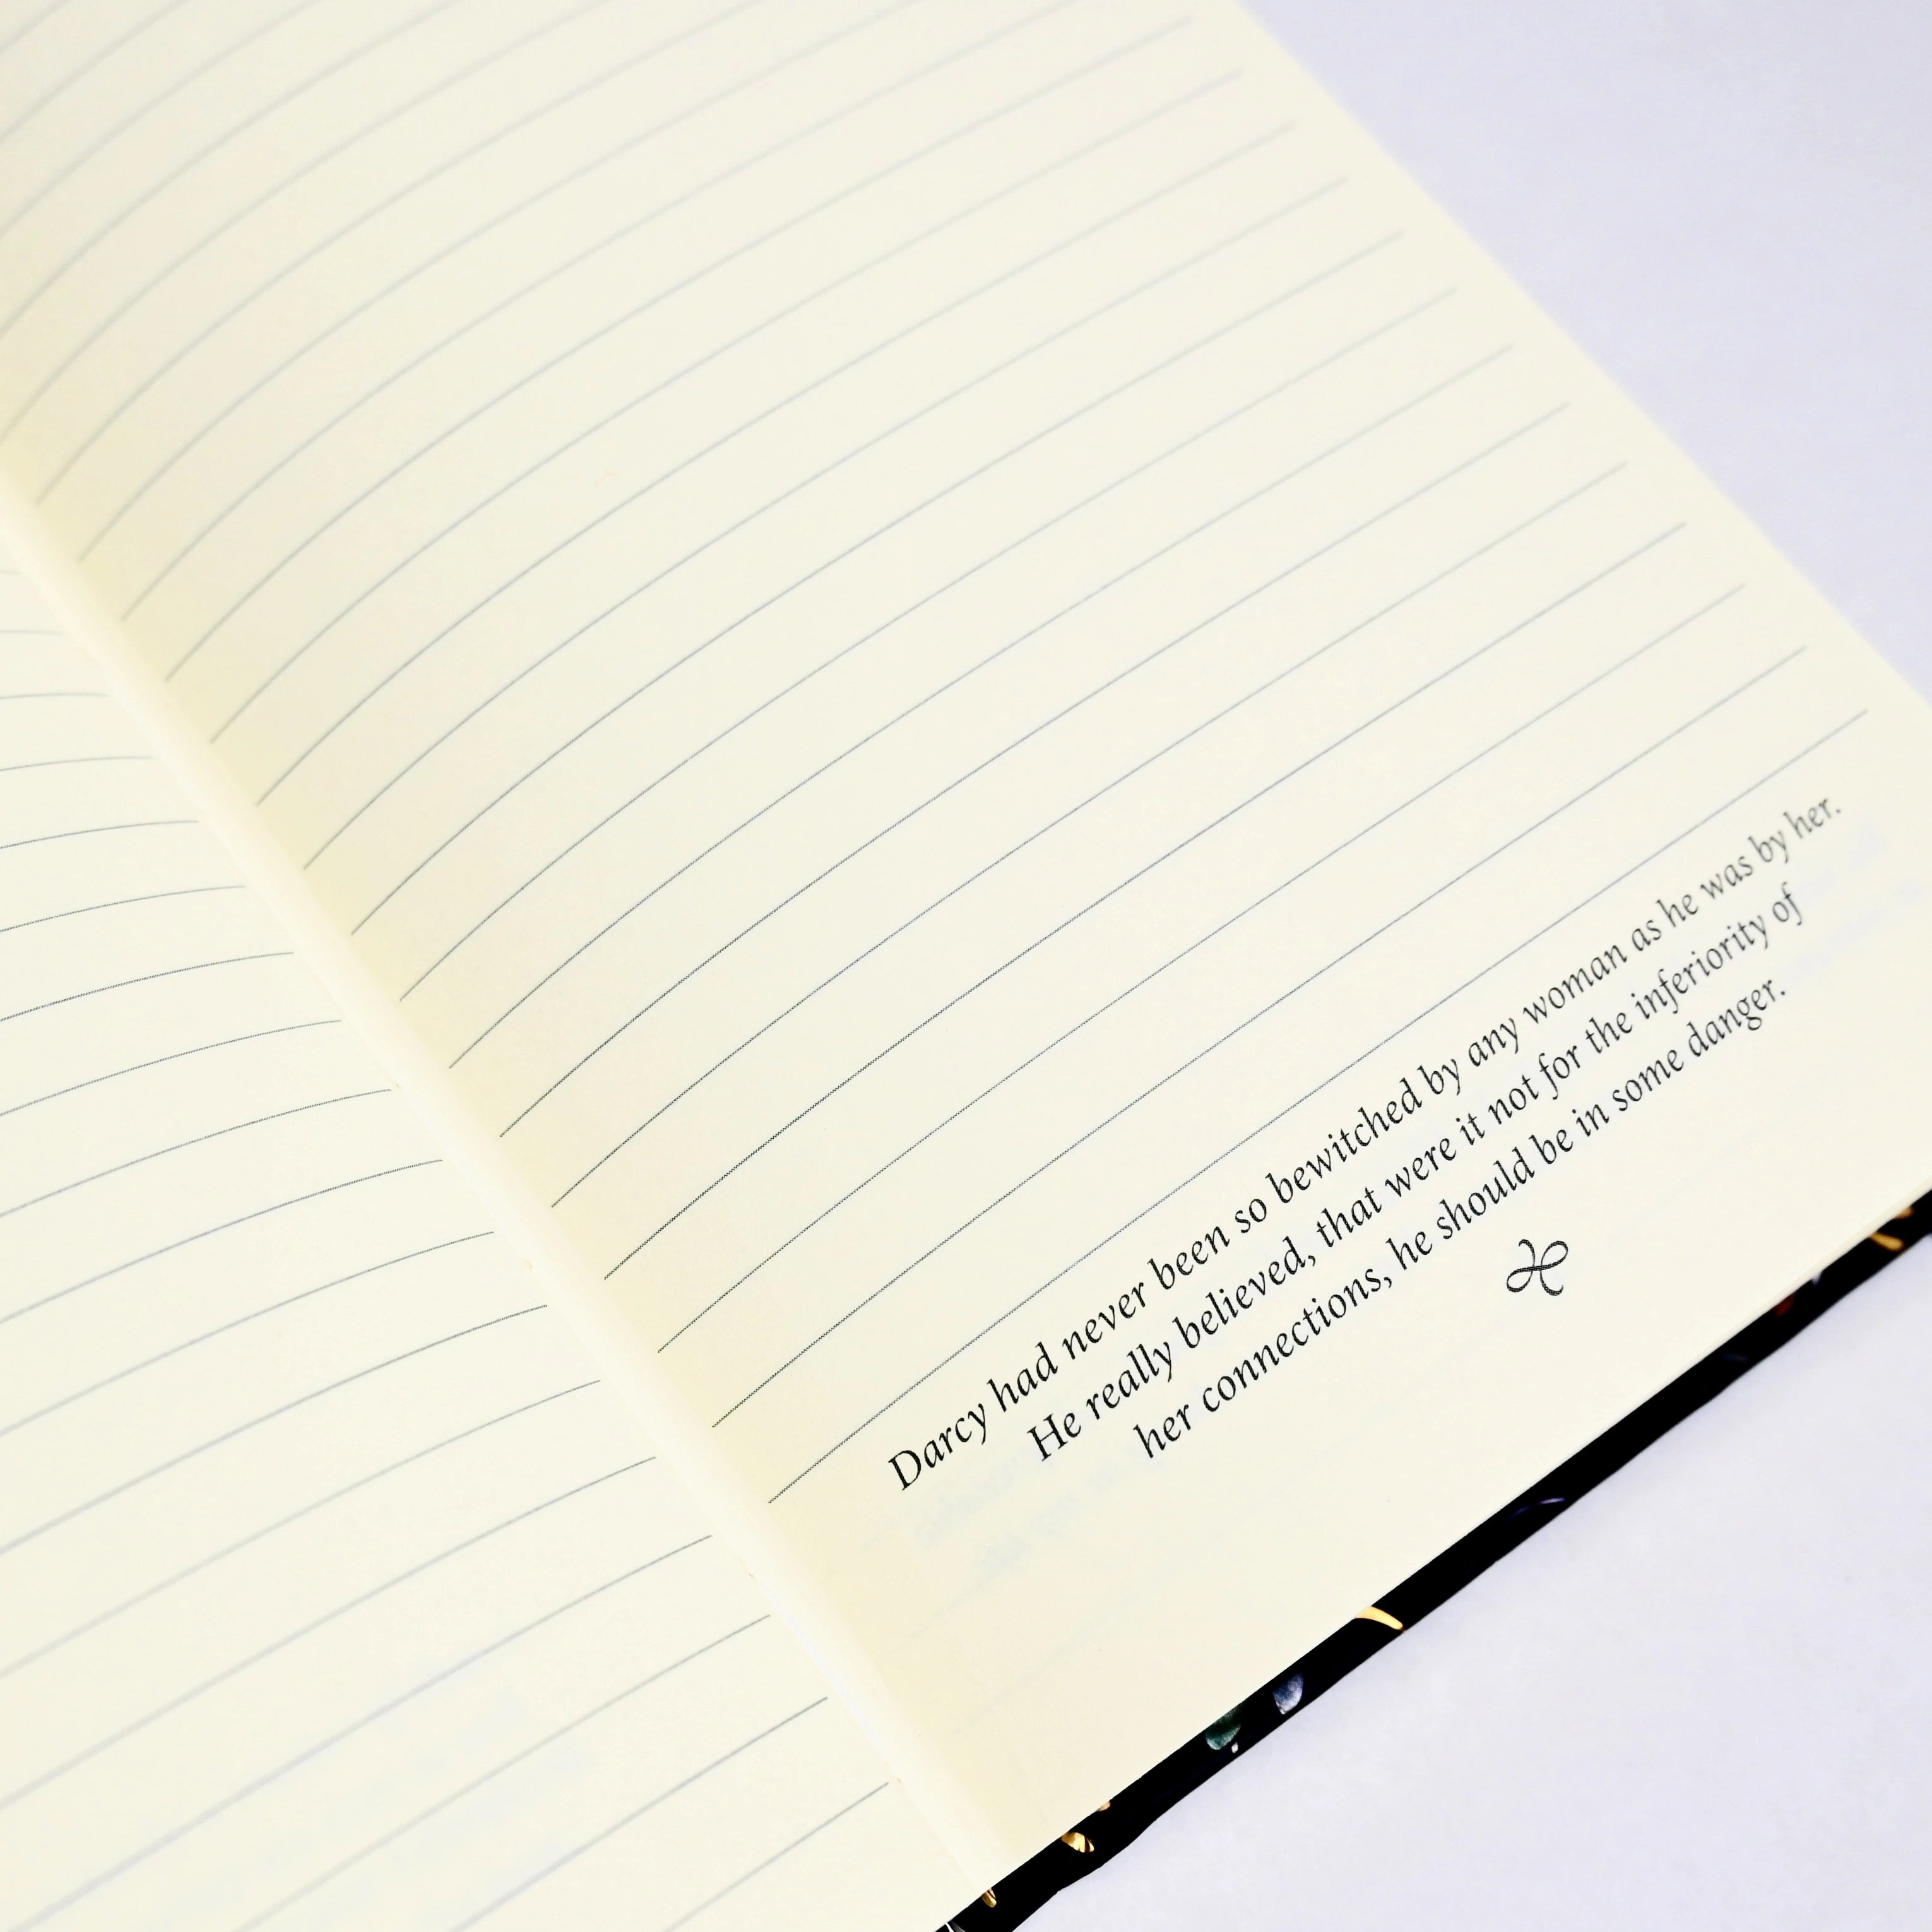 Darcy had never been so bewitched by any woman as he was by her.
He really believed, that were it not for the inferiority of
her connections, he should be in some danger.